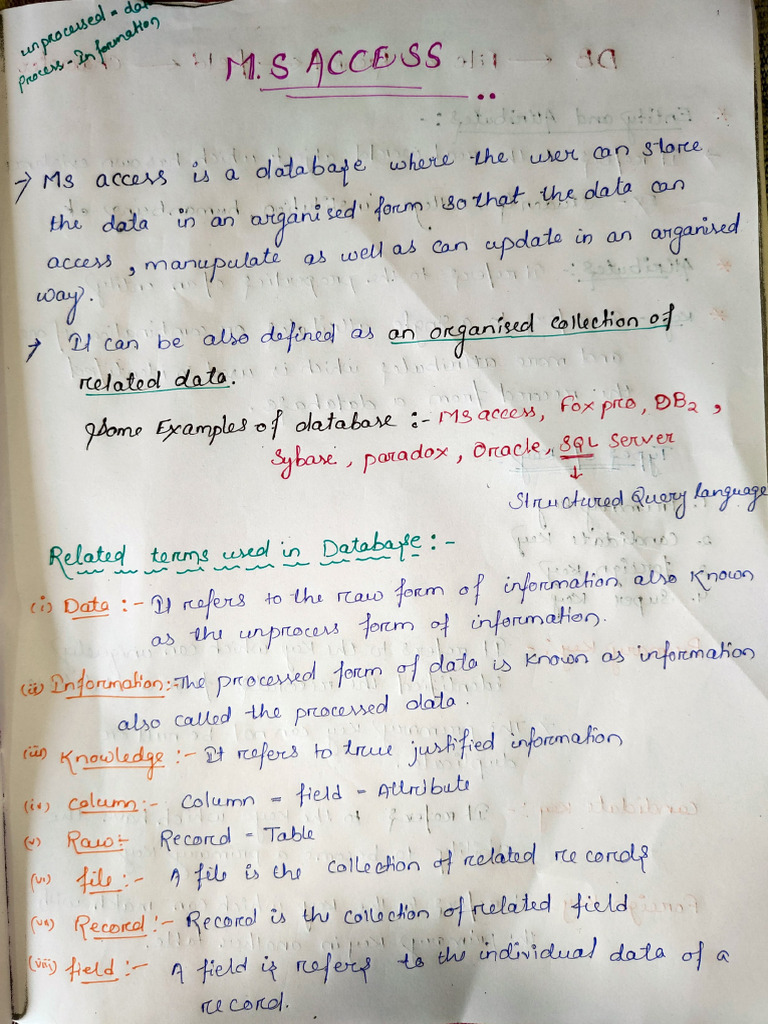 unprocessed = dat
process - Information
M.S ACCESS
→ MS access is a database where the user can store
the data in an organised form so that the data can
access, manupulate as well as can update in an organised
way.
→ It can be also defined as an organised collection of
related data.
Some Examples of database :- MS access, Fox pro, DB2,
Sybase, paradox, Oracle, SQL Server
↓
Structured Query language
Related terms used in Database :-
(i) Data :- It refers to the raw form of information also known
as the unprocess form of information.
(ii) Information :- The processed form of data is known as information
also called the processed data.
(iii) Knowledge :- It refers to true justified information
(iv) Column :- Column = field = Attribute
(v) Raw :- Record = Table
(vi) file :- A file is the collection of related records
(vii) Record :- Record is the collection of related field
(viii) field :- A field is refers to the individual data of a
record.